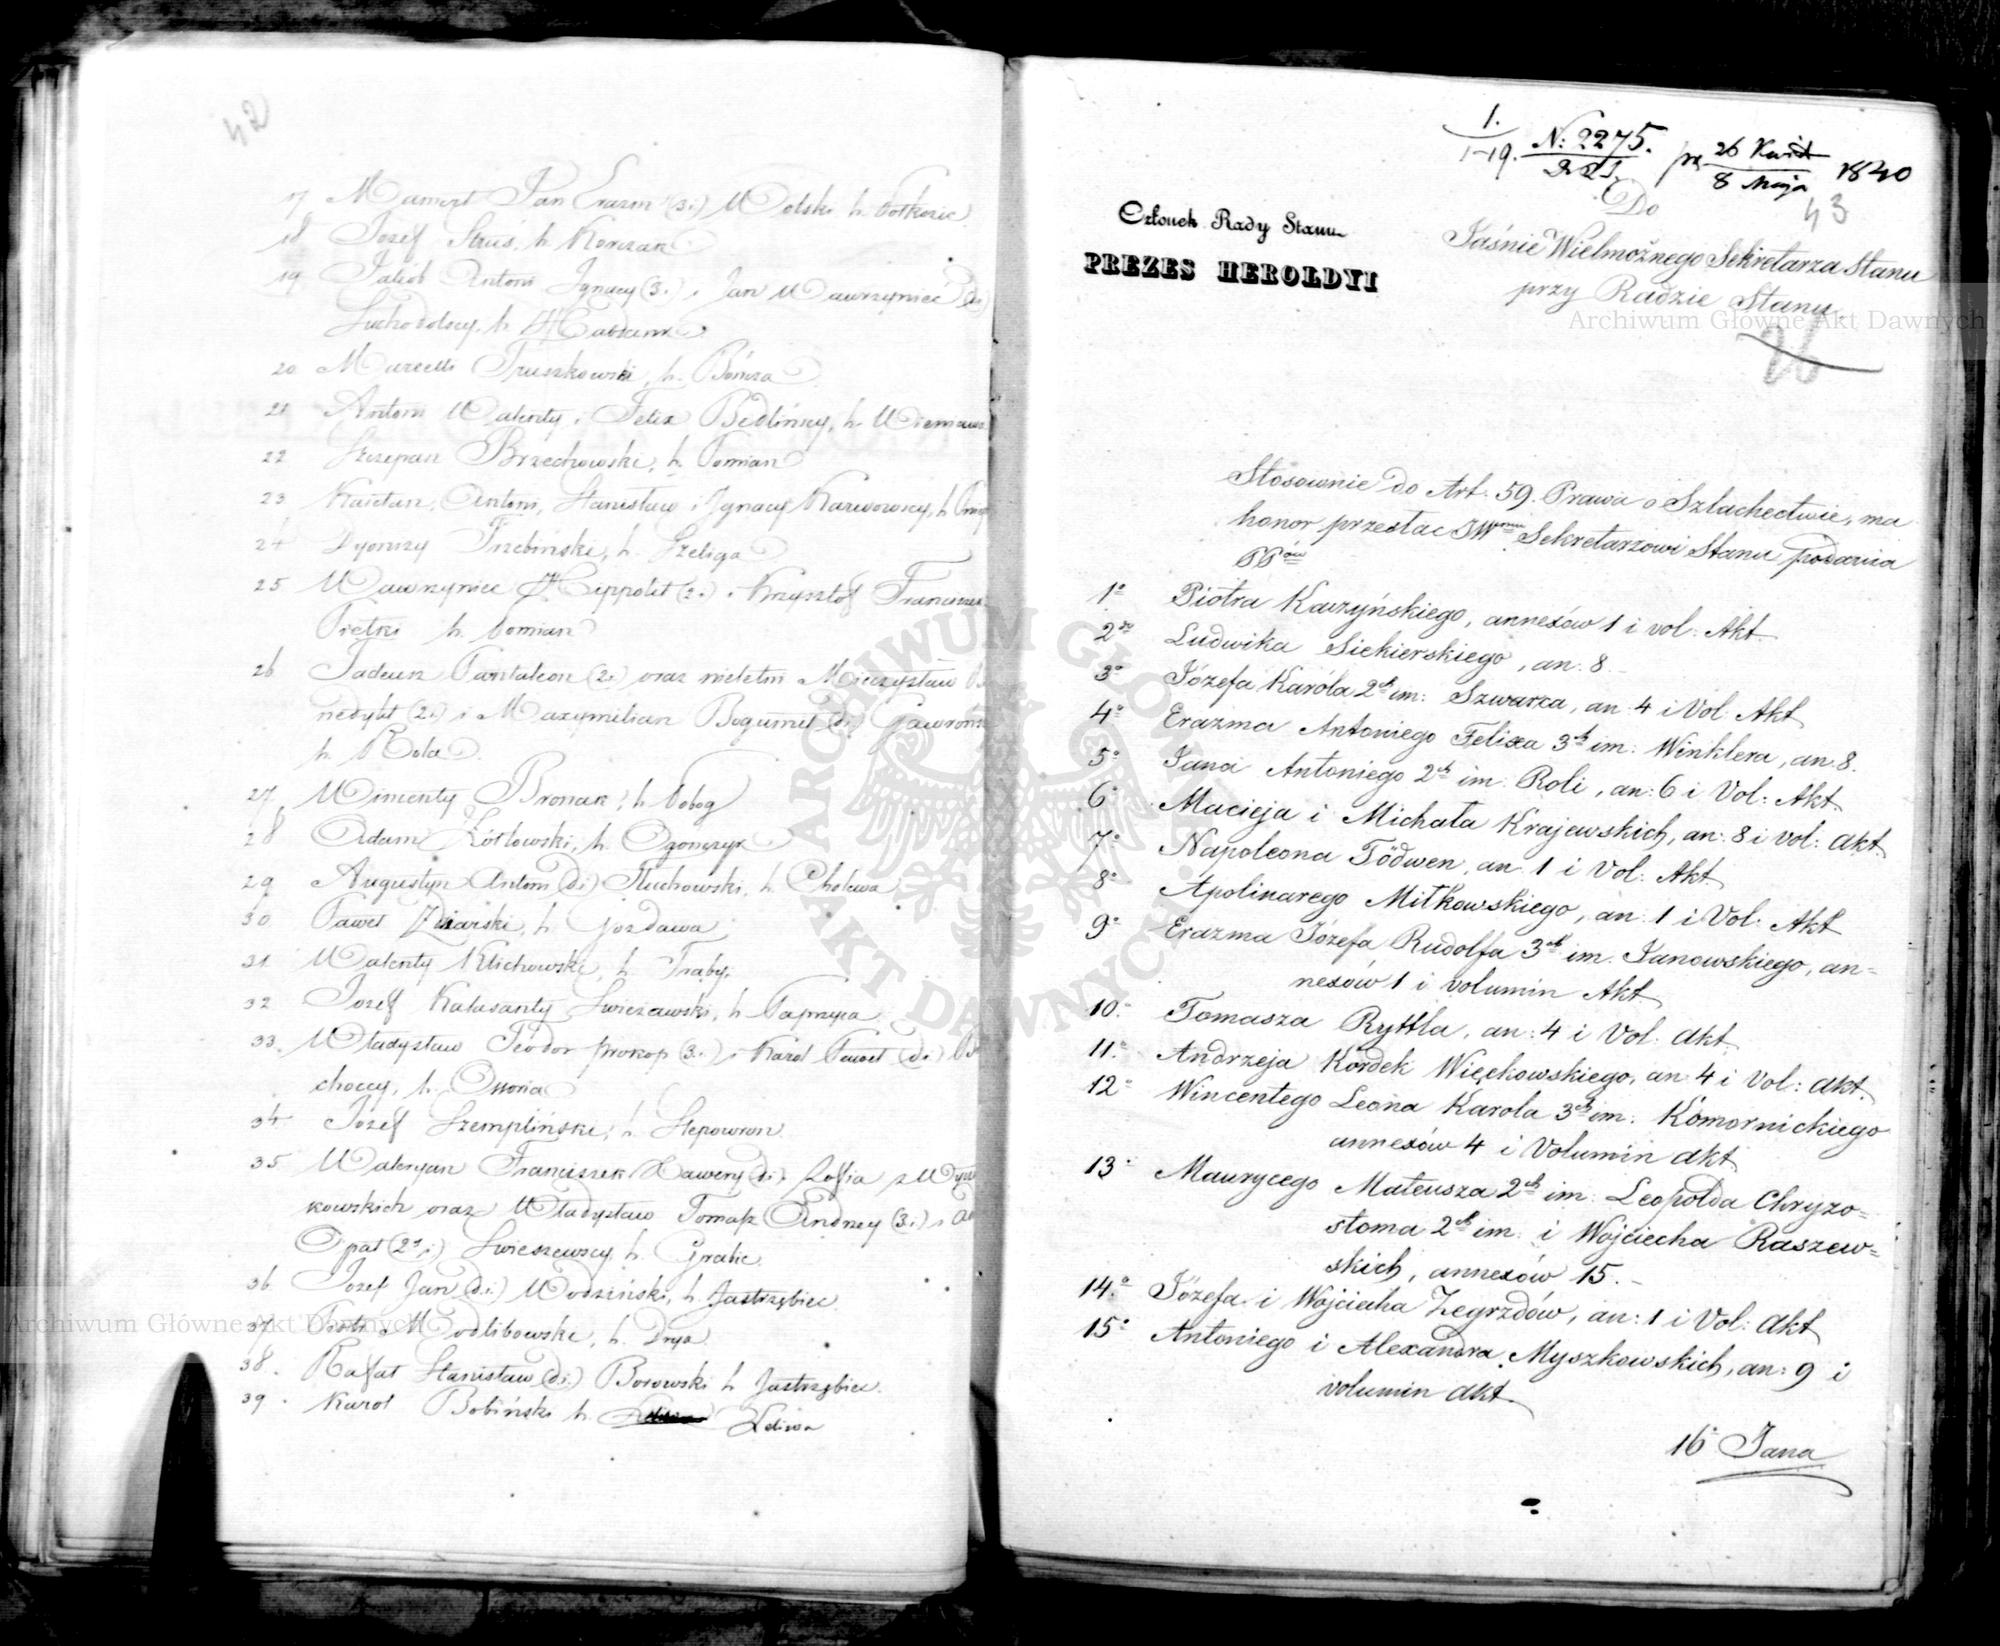 42
17 Mamert Jan Erazm (3. i.) Wolski h. Półkozic
18 Józef Struś, h. Korczak
19 Jakób Antoni Ignacy (3. i. Jan Wawrzyniec (2 i)
Suchodolscy, h. Habdank
20 Marcelli Truszkowski, h. Bończa
21 Antoni Walenty i Felix Bedlińscy, h. Wieniawa
22 Szczepan Brzechowski, h. Pomian
23 Kaietan, Antoni, Stanisław i Ignacy Karwowscy, h.
24 Dyonizy Trzebiński, h. Szeliga
25 Wawrzyniec Hippolit (2. i) i Krzysztof Franciszek
Piętki h. Pomian
26 Tadeusz Pantaleon (2. i) oraz nieletni Mieczysław
nedykt (2. i) i Maxymilian Bogumił (2 i) Gawrońs
h. Rola
27 Wincenty Broniak, h. Pobog
28 Adam Kotłowski, h. Ogończyk
29 Augustyn Antoni (2 i) Tłuchowski, h. Cholewa
30 Paweł Zdziarski, h. Gozdawa
31 Walenty Klichowski, h. Traby
32 Józef Kalasanty Świeżawski, h. Paprzyca
33. Władysław Teodor Prokop (3. i) i Karol Paweł (2 i)
choccy, h. Ossoria
34 Józef Szempliński, h. Slepowron
35 Waleryan Franciszek Xawery (3 i) Zofia z Wysz
kowskich oraz Władysław Tomasz Andrzey (3. i) i
Opat (2 i) Świeszewscy h. Grabie
36 Józef Jan (2. i) Wodziński, h. Jastrzębiec
37 Piotr Modlibowski, h. Drya
38. Rafał Stanisław (2 i) Borowski h. Jastrzębiec.
39. Karol Bobiński h. Leliwa
1.
1-19. N: 2275.
221. pr 26 Kwiet
8 Maja 1840
43
Do
Jaśnie Wielmożnego Sekretarza Stanu
przy Radzie Stanu
26
Członek Rady Stanu
PREZES HEROLDYI
Stosownie do Art. 59. Prawa o Szlachectwie, ma
honor przesłac JWmu Sekretarzowi Stanu podania
PPów
1o Piotra Kaczyńskiego, annexów 1 i vol: Akt.
2go Ludwika Siekierskiego, an. 8.
3o Józefa Karóla 2ch im: Szwarca, an. 4 i Vol: Akt
4o Erazma Antoniego Felixa 3ch im: Winklera, an. 8.
5o Jana Antoniego 2ch im. Roli, an: 6 i Vol: Akt.
6o Macieja i Michała Krajewskich, an: 8 i vol: Akt
7o Napoleona Tödwen, an. 1 i Vol: Akt
8o Apolinarego Miłkowskiego, an. 1 i Vol: Akt
9o Erazma Józefa Rudolfa 3ch im. Janowskiego, an=
nexów 1 i volumin Akt
10. Tomasza Ryttla, an: 4 i Vol: Akt.
11. Andrzeja Kordek Więckowskiego, an 4 i Vol: Akt.
12o Wincentego Leona Karola 3ch im: Komornickiego
annexów 4 i Volumin akt
13o Maurycego Mateusza 2ch im: Leopolda Chryzo=
stoma 2ch im. i Wojciecha Raszew=
skich, annexów 15.
14.o Józefa i Wojciecha Zegrzdów, an: 1 i Vol: Akt
15o Antoniego i Alexandra Myszkowskich, an: 9 i
volumin akt
16o Jana
ARCHIWUM GŁÓWNE AKT DAWNYCH
Archiwum Główne Akt Dawnych
Archiwum Główne Akt Dawnych